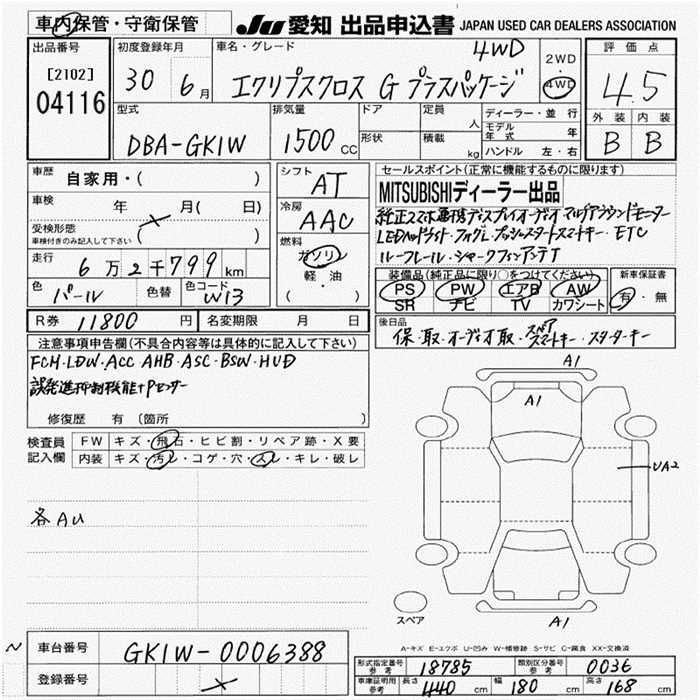 車内保管・守衛保管 JU 愛知 出品申込書 JAPAN USED CAR DEALERS ASSOCIATION
出品番号 初度登録年月 車名・グレード 4WD 2WD 評価点
[2102] 30 6月 エクリプスクロス G プラスパッケージ 4WD 4.5
04116 型式 排気量 ドア 定員 人 ディーラー・並行 外装 内装
DBA-GK1W 1500CC 形状 積載 kg モデル年式 年 B B
ハンドル 左・右
車歴 自家用・( ) シフト AT セールスポイント(正常に機能するものに限ります)
車検 年 月( 日) 冷房 AAC MITSUBISHIディーラー出品
受検形態 純正スマホ連携ディスプレイオーディオ マルチアラウンドモニター
車検付きのみ記入して下さい ( ) 燃料 ガソリン LEDヘッドライト・フォグL・プッシュスタートスマートキー・ETC
走行 6万2千799km 軽・油 ルーフレール・シャークフィンアンテナ
色 パール 色替 色コード W13 ( ) 装備品(純正品に限り○をつけてください) 新車保証書
PS PW エアB AW 有・無
SR ナビ TV カワシート
R券 11800円 名変期限 月 日 後日品
保・取・オーディオ取・スペアスマートキー・スターターキー
注意事項申告欄(不具合内容等は具体的に記入して下さい)
FCM・LDW・ACC・AHB・ASC・BSW・HUD
誤発進抑制機能+Pセンサー
修復歴 有 (箇所 )
検査員 FW キズ・飛石・ヒビ割・リペア跡・X要
記入欄 内装 キズ・汚レ・コゲ・穴・スレ・キレ・破レ
A1
A1
UA2
各AU
A1
スペア
A-キズ E-エクボ U-凹み W-補修跡 S-サビ C-腐食 XX-交換済
車台番号 GK1W-0006388
登録番号
形式指定番号 参考 18785 類別区分番号 参考 0036
車庫証明用 参考 長さ 440cm 幅 180cm 高さ 168cm